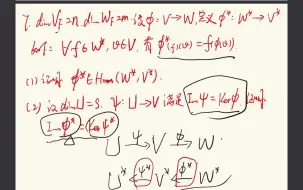 7. dim V_F=n. dim W_F=m. 设φ: V→W, 定义φ*: W*→V*
∀f∈W*, v∈V, 有 φ*(f)(v)=f(φ(v))
(1) 证明 φ*∈Hom(W*, V*).
(2) 设 dim U=s. ψ: U→V 满足 Im ψ=Ker φ 证明
Im φ*=Ker ψ*
U →ψ V →φ W
U* ←ψ* V* ←φ* W*